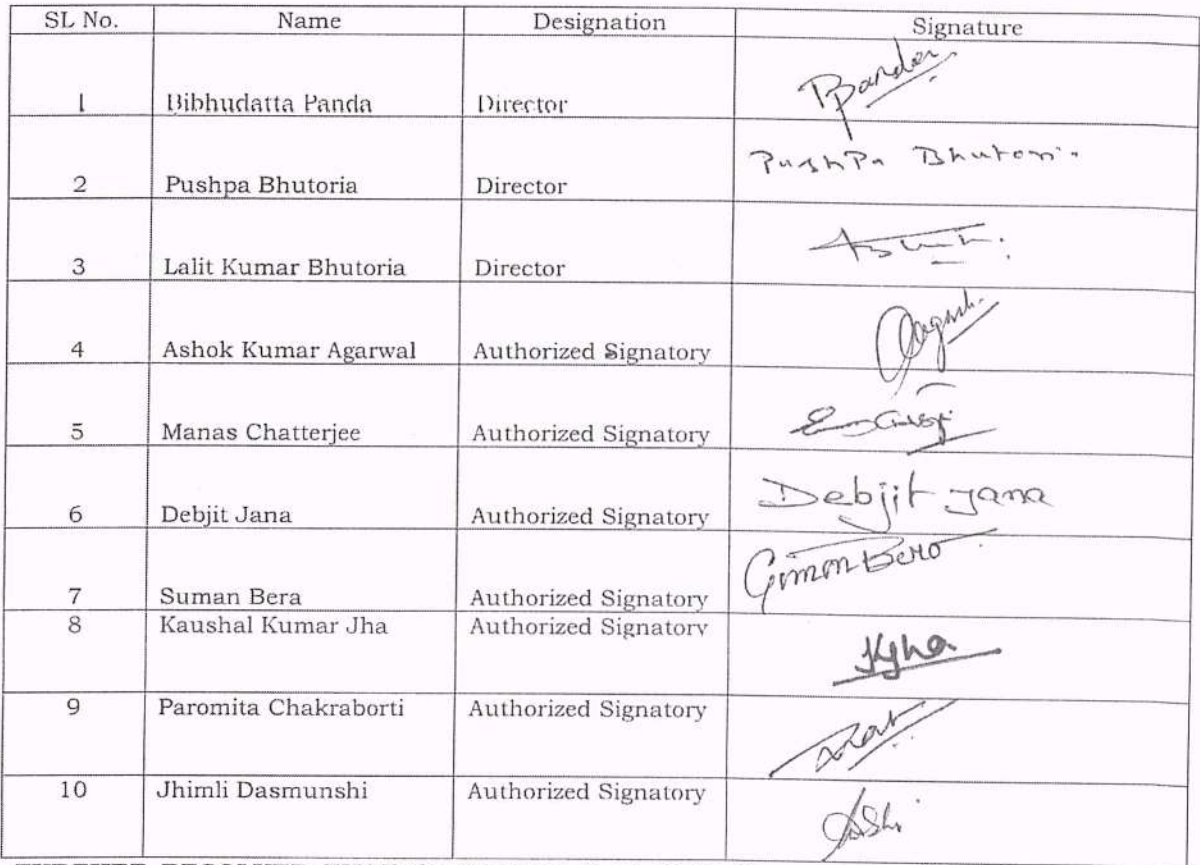 SL No. Name Designation Signature
1 Bibhudatta Panda Director
2 Pushpa Bhutoria Director PushPa Bhutoria
3 Lalit Kumar Bhutoria Director
4 Ashok Kumar Agarwal Authorized Signatory
5 Manas Chatterjee Authorized Signatory
6 Debjit Jana Authorized Signatory Debjit Jana
7 Suman Bera Authorized Signatory
8 Kaushal Kumar Jha Authorized Signatory
9 Paromita Chakraborti Authorized Signatory
10 Jhimli Dasmunshi Authorized Signatory